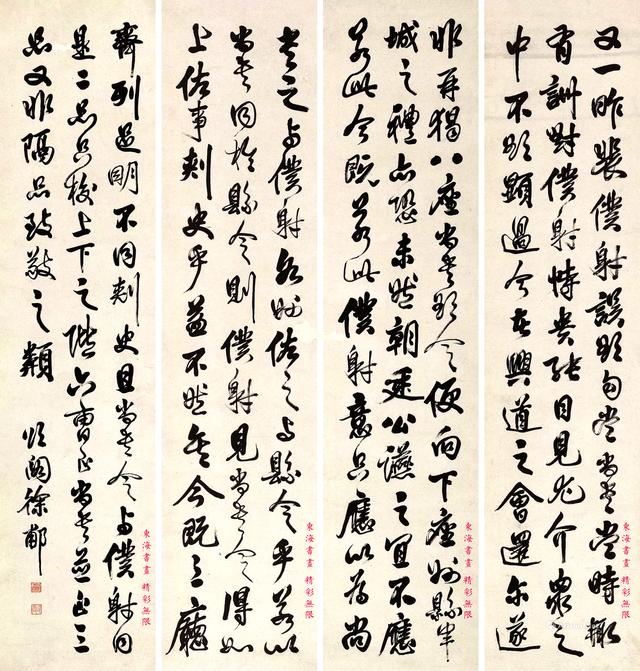 又一昨裴僕射誤欲勾當尚書當時輒
有詶對僕射恃貴張目見尤介眾之
中不欲顯過今者興道之會還尔遂
非再猲八座尚書欲令便向下座州縣軍
城之禮亦恐未然朝廷公讌之宜不應
若此今既若此僕射意只應以為尚
書之與僕射若州佐之與縣令乎若以
尚書同於縣令則僕射見尚書令得如
上佐事刺史乎益不然矣今既三廳
齊列足明不同刺史且尚書令與僕射同
是二品只校上下之階六曹尚書並正三
品又非隔品致敬之類
頌閣徐郙
東海書畫 精彩無限
東海書畫 精彩無限
東海書畫 精彩無限
東海書畫 精彩無限